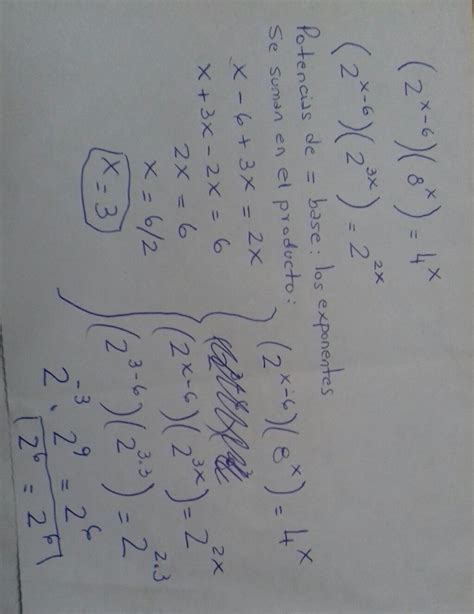 (2^{x-6})(8^x) = 4^x
(2^{x-6})(2^{3x}) = 2^{2x}
Potencias de = base: los exponentes
Se suman en el producto:
x - 6 + 3x = 2x
x + 3x - 2x = 6
2x = 6
x = 6/2
x = 3
(2^{x-6})(8^x) = 4^x
(2^{x-6})(2^{3x}) = 2^{2x}
(2^{3-6})(2^{3.3}) = 2^{2.3}
2^{-3}. 2^9 = 2^6
2^6 = 2^6